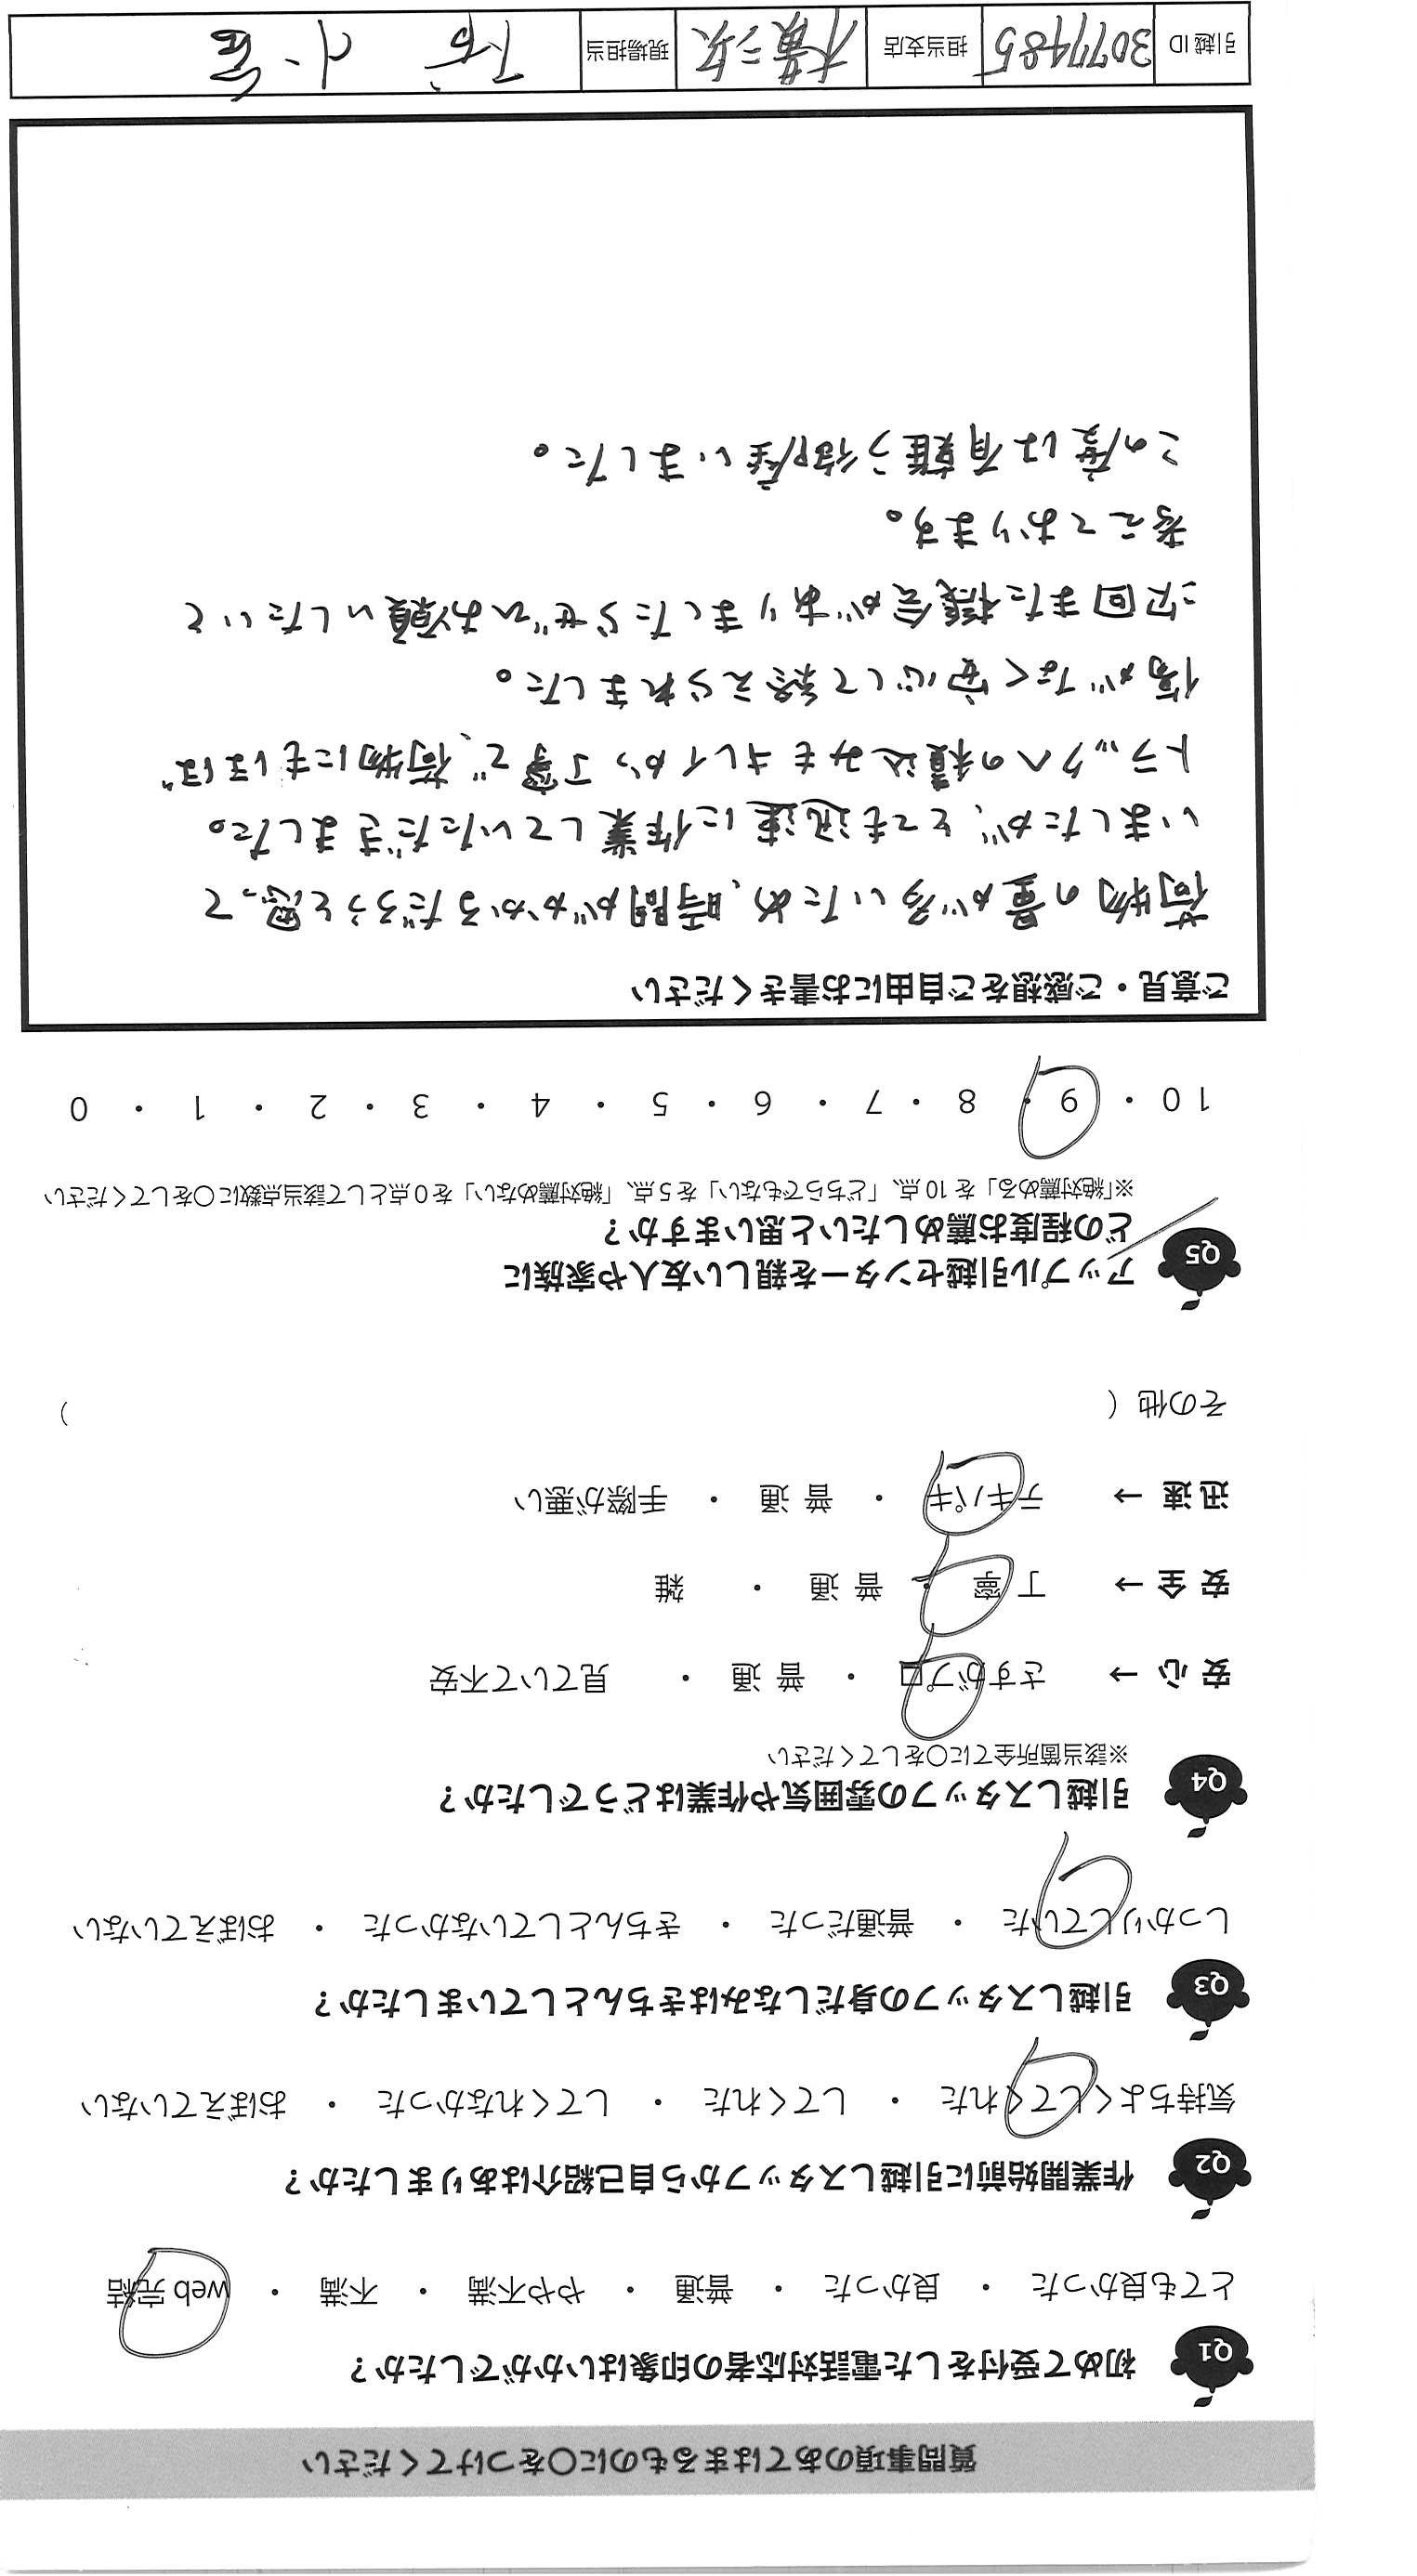 質問事項のあてはまるものに〇をつけてください
Q1 初めて受付をした電話対応者の印象はいかがでしたか？
とても良かった ・ 良かった ・ 普通 ・ やや不満 ・ 不満 ・ web 完結
Q2 作業開始前に引越しスタッフから自己紹介はありましたか？
気持ちよくしてくれた ・ してくれた ・ してくれなかった ・ おぼえていない
Q3 引越しスタッフの身だしなみはきちんとしていましたか？
しっかりしていた ・ 普通だった ・ きちんとしていなかった ・ おぼえていない
Q4 引越しスタッフの雰囲気や作業はどうでしたか？
※該当箇所全てに〇をしてください
安 心 → さすがプロ ・ 普 通 ・ 見ていて不安
安 全 → 丁 寧 ・ 普 通 ・ 雑
迅 速 → テキパキ ・ 普 通 ・ 手際が悪い
その他（ ）
Q5 アップル引越センターを親しい友人や家族に
どの程度お薦めしたいと思いますか？
※「絶対薦める」を 10 点、「どちらでもない」を 5 点、「絶対薦めない」を 0 点として該当点数に〇をしてください
10 ・ 9 ・ 8 ・ 7 ・ 6 ・ 5 ・ 4 ・ 3 ・ 2 ・ 1 ・ 0
ご意見・ご感想をご自由にお書きください
荷物の量が多いため、時間がかかるだろうと思って
いましたが、とても迅速に作業していただきました。
トラックへの積込みもキレイかつ丁寧で、荷物にもほぼ
傷がなく安心して終えられました。
次回また機会がありましたらぜひお願いしたいと
考えております。
この度は有難う御座いました。
引越 ID 3077485 担当支店 横二次 現場担当